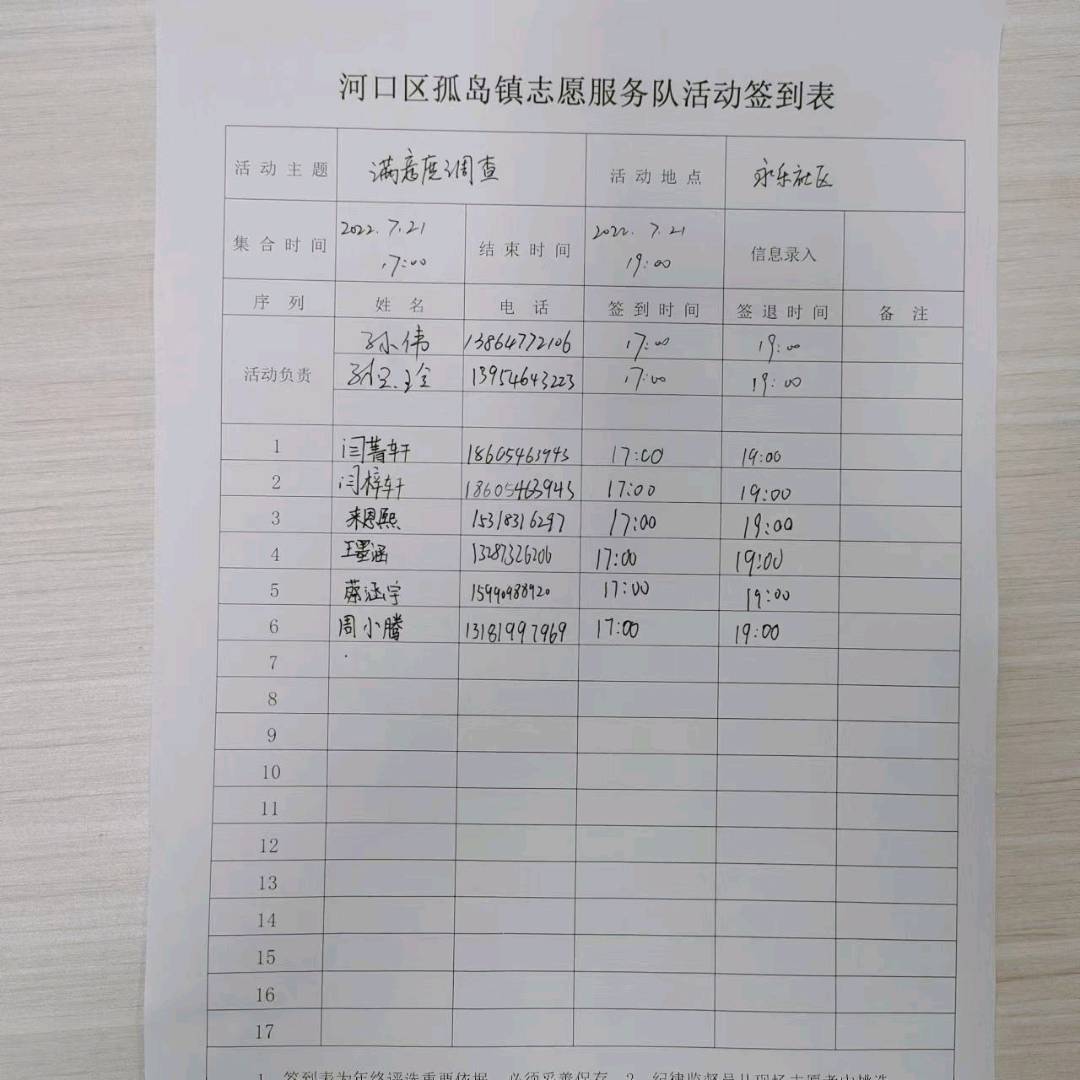 河口区孤岛镇志愿服务队活动签到表
活动主题 满意度调查 活动地点 永乐社区
集合时间 2022.7.21 17:00 结束时间 2022.7.21 19:00 信息录入
序列 姓名 电话 签到时间 签退时间 备注
活动负责
孙伟 13864772106 17:00 19:00
13954643223 17:00 19:00
1 闫菁轩 18605463943 17:00 19:00
2 闫梓轩 18605463943 17:00 19:00
3 来恩熙 15318316297 17:00 19:00
4 王墨涵 13287326206 17:00 19:00
5 蔡涵宇 15990988920 17:00 19:00
6 周小腾 13181997969 17:00 19:00
7
8
9
10
11
12
13
14
15
16
17
1、签到表为年终评选重要依据，必须妥善保存。2、纪律监督员从现场志愿者中挑选